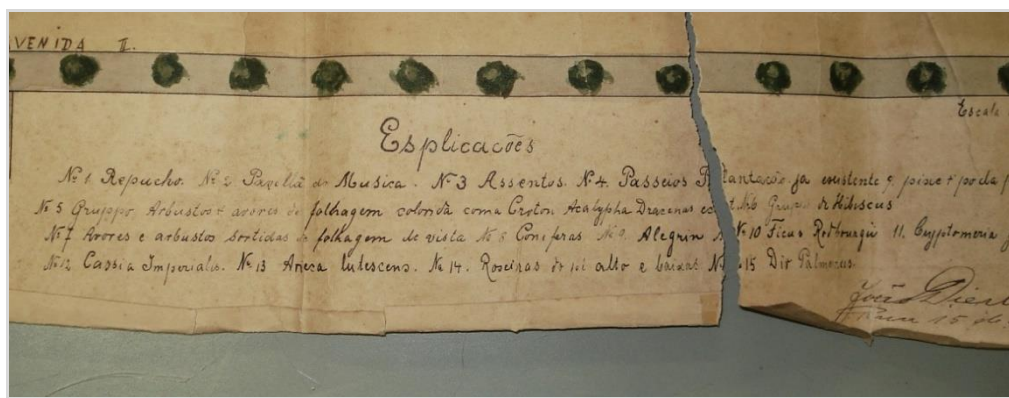 VENIDA II.
Escala
Esplicações
Nº 1 Repucho. Nº 2 Pavilhã da Musica. Nº 3 Assentos. Nº 4. Passeios Plantação ja existente
Nº 5 Gruppo Arbustos + arvores de folhagem colorida como Croton Acalypha Dracenas Grupo de Hibiscus
Nº 7 Arvores e arbustos sortidas de folhagem de vista Nº 8 Coniferas Nº 9 Alegrim Nº 10 Ficus 11. Cryptomeria
Nº 12 Cassia Imperialis. Nº 13 Areca lutescens. Nº 14. Roseiras de pé alto e baixas Nº 15 Div Palmeiras.
João
15 de